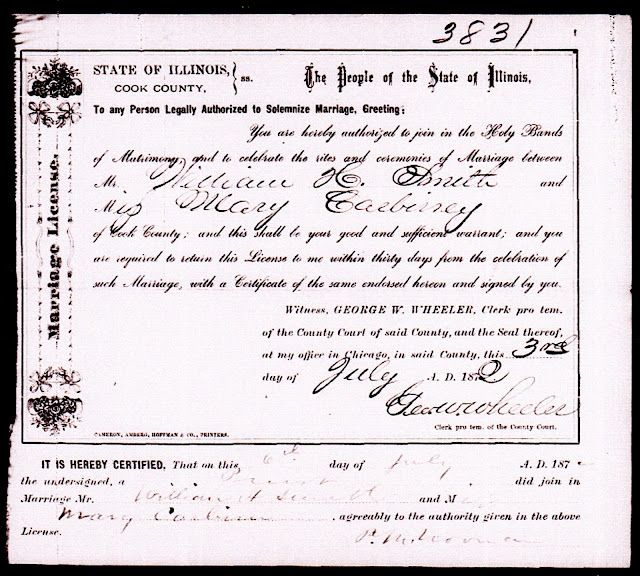 3831
STATE OF ILLINOIS, } ss. The People of the State of Illinois,
COOK COUNTY,
To any Person Legally Authorized to Solemnize Marriage, Greeting:
You are hereby authorized to join in the Holy Bands
of Matrimony, and to celebrate the rites and ceremonies of Marriage between
Mr. William H. Smith and
M iss Mary
of Cook County; and this shall be your good and sufficient warrant; and you
are required to return this License to me within thirty days from the celebration of
such Marriage, with a Certificate of the same endorsed hereon and signed by you.
Witness, GEORGE W. WHEELER, Clerk pro tem.
of the County Court of said County, and the Seal thereof,
at my office in Chicago, in said County, this 3rd
day of July A. D. 1872
Geo W Wheeler
Clerk pro tem. of the County Court.
Marriage License.
CAMERON, AMBERG, HOFFMAN & CO., PRINTERS.
IT IS HEREBY CERTIFIED, That on this 6th day of July A. D. 187
the undersigned, a Priest did join in
Marriage Mr. William H Smith and M
Mary agreeably to the authority given in the above
License.